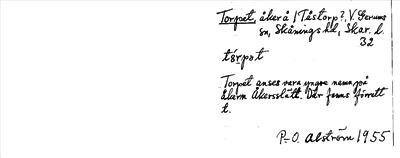 Torpet, åker å 1 Tåstorp?, V. Gerums
sn, Skånings hd, Skar. l.
32
tɔ́rpət
Torpet anses vara yngre namn på
åkern Åkersslätt. Där fanns förrett
t.
P.-O. Alström 1955